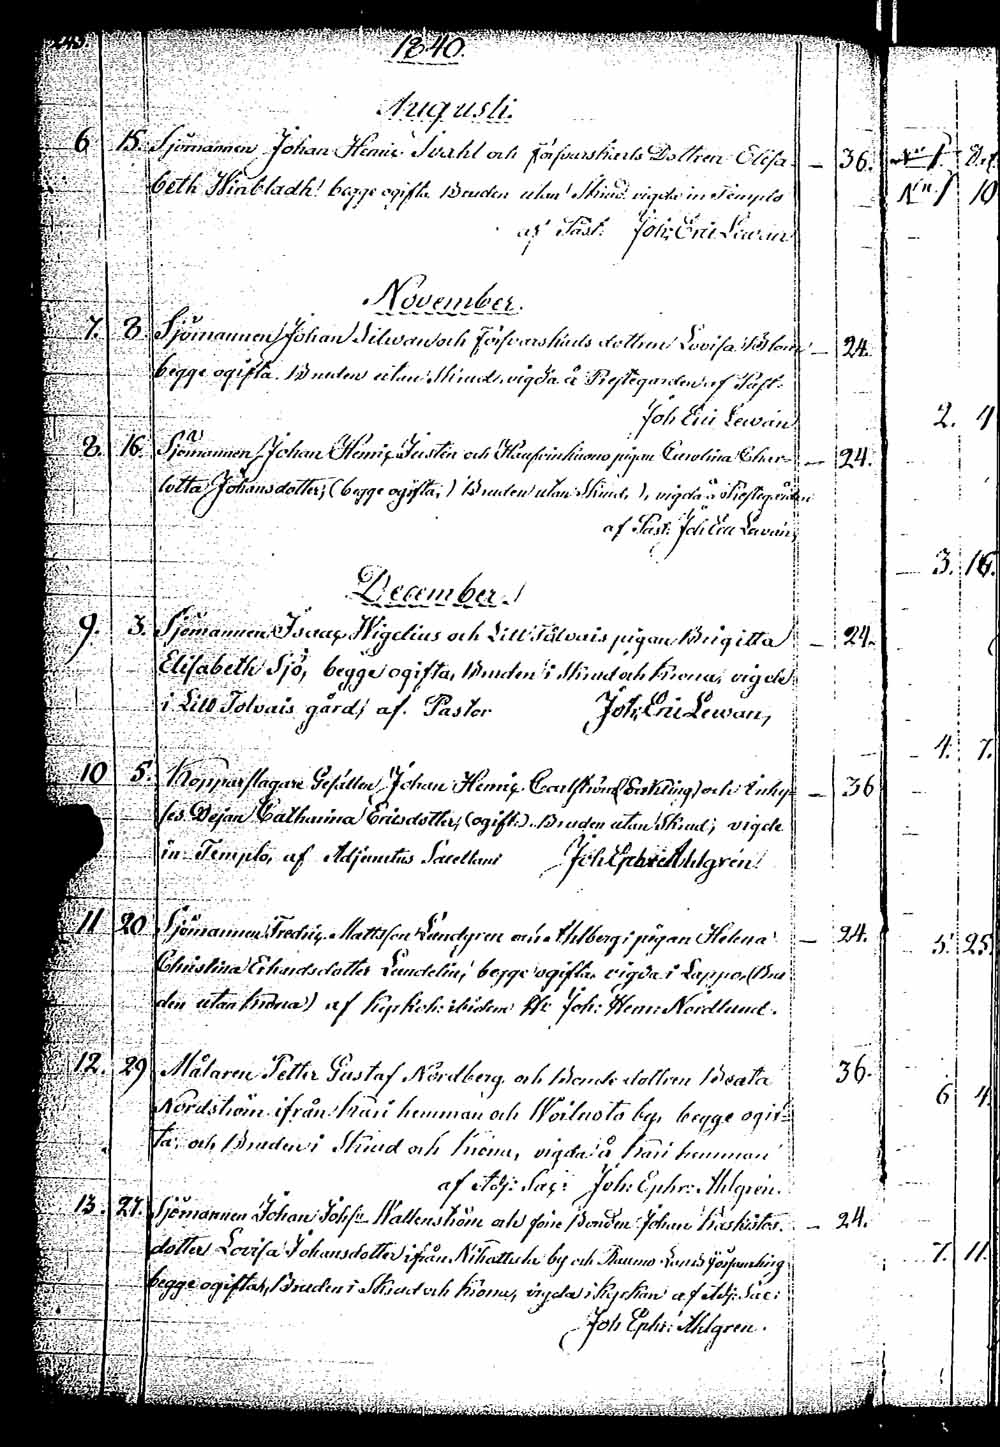 243.
1840.
Augusti.
6 15. Sjömannen Johan Henric Svahl och Försvarskarls Dottren Elisa- – 36.
beth Winbladh! begge ogifta. Bruden utan Skrud. vigda in Templo
af Past: Joh: Eric Lewan
November.
7. 8. Sjömannen Johan Silwan och Försvarskarls dottren Lovisa Blom – 24.
begge ogifta. Bruden utan Skrud. vigda å Prestegården af Past.
Joh Eric Lewan
8. 16. Sjömannen Johan Henric Justen och pigan Carolina Char- – 24.
lotta Johansdotter, (begge ogifta,) Bruden utan Skrud, vigda å Prestegården
af Past: Joh Eric Lewan,
December.
9. 3. Sjömannen Isaac Wigelius och Lill Tolvais pigan Brigitta – 24.
Elisabeth Sjö, begge ogifta, Bruden i Skrud och Krona, vigde
i Lill Tolvais gård, af. Pastor Joh: Eric Lewan,
10 5. Kopparslagare Gesällen Johan Henric Carlström och Enky- – 36
Dejan Catharina Ericsdotter, (ogift.) Bruden utan Skrud, vigde
in Templo, af Adjunctus Sacellani Joh Ephr Ahlgren!
11 20 Sjömannen Fredric Mattsson Lundgren och Ahlbergs pigan Helena – 24.
Christina Erlandsdotter Lundelin, begge ogifta. vigda i Lappo, (Bru
den utan krona) af Kyrkoh: ibidem Hr Joh: Henr: Nordlund.
12. 29 Målaren Petter Gustaf Nordberg och Bonde dottren Beata 36.
Nordström ifrån Kari hemman och Woiluoto by, begge ogif-
ta, och Bruden i Skrud och Krona, vigda å Kari hemman
af Adj: Sac: Joh: Ephr: Ahlgren.
13. 27. Sjömannen Johan Johsn Wallenström och förre Bonden Johan – 24.
dotter Lovisa Johansdotter ifrån by och Raumo Lands församling
begge ogifta, Bruden i Skrud och Krona, vigda i Kyrkan af Adj: Sac:
Joh Ephr: Ahlgren.
No 1.
No 1 10
2. 4
3. 16.
4. 7.
5. 25.
6 4.
7. 11.